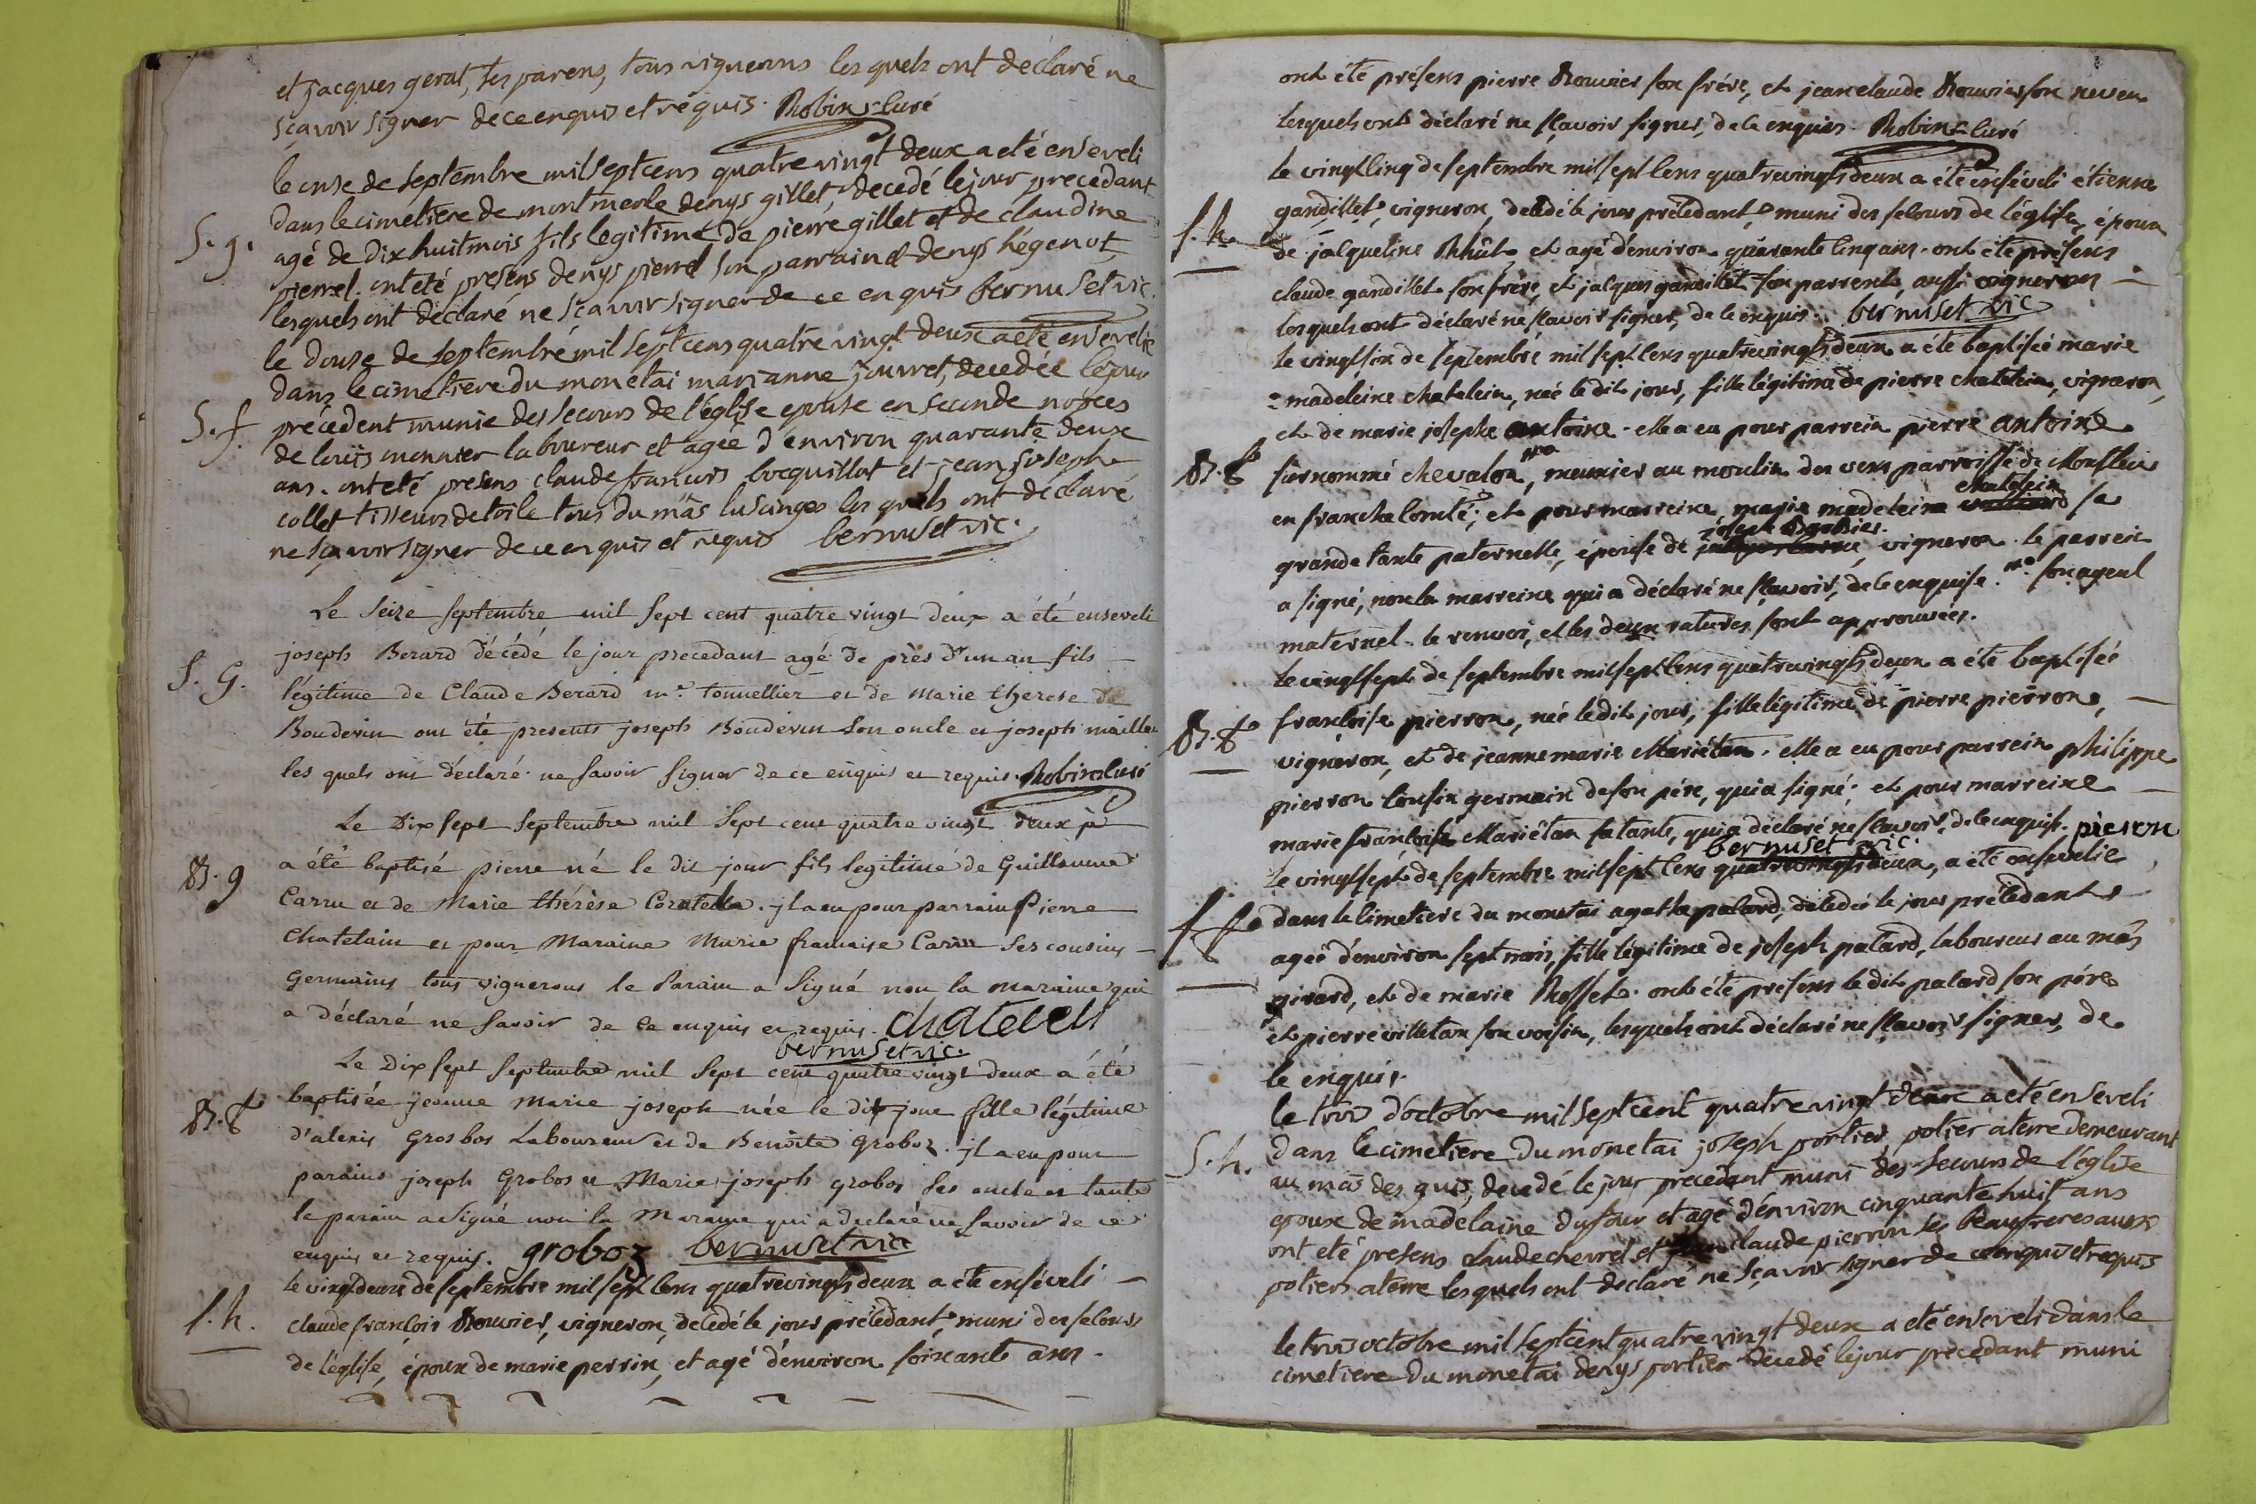 et jacques gerat, ses parens, tous vignerons lesquels ont declaré ne
sçavoir signer de ce enquis et réquis. Robin curé
le onse de septembre mil sept cens quatre vingt deux a eté enseveli
dans le cimetiere de montmerle denys gillet, decedé le jour precedant
S. g.
agé de dix huit mois fils legitime de pierre gillet et de claudine
pierrel. ont eté presens denys pierrel son parrain et denys hégenot,
lesquels ont déclaré ne sçavoir signer de ce enquis bernuset vic.
le douse de septembre mil sept cens quatre vingt deux a eté ensevelie
dans le cimetiere du monetai marianne jouvret, decedée le jour
S. f.
précedent munie des secours de l'église epouse en seconde nopces
de louïs monnier laboureur et agée d'environ quarante deux
ans. ont eté presens claude francois bocquillot et jean joseph
collet tisseurs de toile tous du mas luscinges les quels ont déclaré
ne sçavoir signer de ce enquis et requis bernuset vic.
Le seize septembre mil sept cent quatre vingt deux a été enseveli
joseph Berard décédé le jour precedant agé de près d'un an fils
S. G.
légitime de Claude Berard me. tonnellier et de Marie therese de
Bouderin ont été presents joseph Bouderin son oncle et joseph
les quels ont déclaré ne savoir signer de ce enquis et requis. Robin curé
Le Dix sept septembre mil sept cent quatre vingt deux
a été baptisé pierre né le dit jour fils legitime de Guillaume
B. g
Carru et de Marie thérèse . jl a eu pour parrain Pierre
Chatelain et pour Maraine Marie francaise Carru ses cousins
germains tous vignerons le Parain a signé non la maraine qui
a déclaré ne savoir de ce enquis et requis. chatelen
bernuset vic.
Le Dix sept septembre mil sept cent quatre vingt deux a été
baptisée jeanne Marie joseph née le dit jour fille légitime
B. f
d'alexis Grosbos Laboureur et de Benoîte groboz. jl a eu pour
parains joseph Grobos et Marie joseph grobos ses oncle et tante
le parain a signé non la Maraine qui a declaré ne savoir de ce
enquis et requis. groboz bernuset vic
le vingt deux de septembre mil sept cens quatrevingts deux a été enséveli
S. h.
claude françois Rouvier, vigneron, décédé le jour précédant, muni des secours
de l'église, époux de marie perrin, et agé d'environ soixante ans.
ont été présens pierre Rouvier son frère, et jean claude Rouvier son neveu
lesquels ont déclaré ne sçavoir signer, de ce enquis. Robin curé
le vingt cinq de septembre mil sept cens quatrevingts deux a été enséveli étienne
S. h.
gandillet, vigneron, décédé le jour précédant, muni des secours de l'église, époux
de jacqueline , et agé d'environ quarante cinq ans. ont été présens
claude gandillet son frère, et jacques gandillet son parrent, aussi vignerons
lesquels ont déclaré ne sçavoir signer, de ce enquis. bernuset vic
le vingt six de septembre mil sept cens quatrevingts deux a été baptisée marie
madeleine chatelein, née le dit jour, fille légitime de pierre chatelein, vigneron,
et de marie josephe antoine. elle a eu pour parrein pierre antoine
B. f
surnommé chevalon, meunier au moulin des vers parroisse de
en franche comté; et pour marreine marie madeleine chatelein sa
grande tante paternelle, épouse de joseph , vigneron. le parrein
a signé, non la marreine qui a déclaré ne sçavoir, de ce enquise. son ayeul
maternel. le renvoi, et les deux ratures sont approuvées.
le vingt sept de septembre mil sept cens quatrevingts deux a été baptisée
B. f
françoise pierron, née le dit jour, fille légitime de pierre pierron,
vigneron, et de jeanne marie Mariétan. elle a eu pour parrein philippe
pierron cousin germain de son père, qui a signé; et pour marreine
marie françoise Mariétan sa tante, qui a déclaré ne sçavoir, de ce enquise. pieron
bernuset vic.
le vingt sept de septembre mil sept cens quatrevingts deux, a été ensevelie
S. f.
dans le cimetiere du monetai agathe palard, décédée le jour précédant
agée d'environ sept mois, fille légitime de joseph palard, laboureur au mas
girard, et de marie Rosset. ont été présens le dit palard son père
et pierre villetan son voisin, lesquels ont déclaré ne sçavoir signer, de
ce enquis.
le trois d'octobre mil sept cent quatre vingt deux a eté enseveli
S. h.
dans le cimetiere du monetai joseph portier potier a terre demeurant
au mas des guis, decedé le jour precedant muni des secours de l'église
epoux de madelaine dufour et agé d'environ cinquante huit ans
ont eté presens claude chevrel et claude pierron ses beaufreres aussi
potiers a terre lesquels ont declaré ne sçavoir signer de ce enquis et requis
le trois octobre mil sept cent quatre vingt deux a eté enseveli dans le
cimetiere du monetai denys portier decedé le jour precedant muni